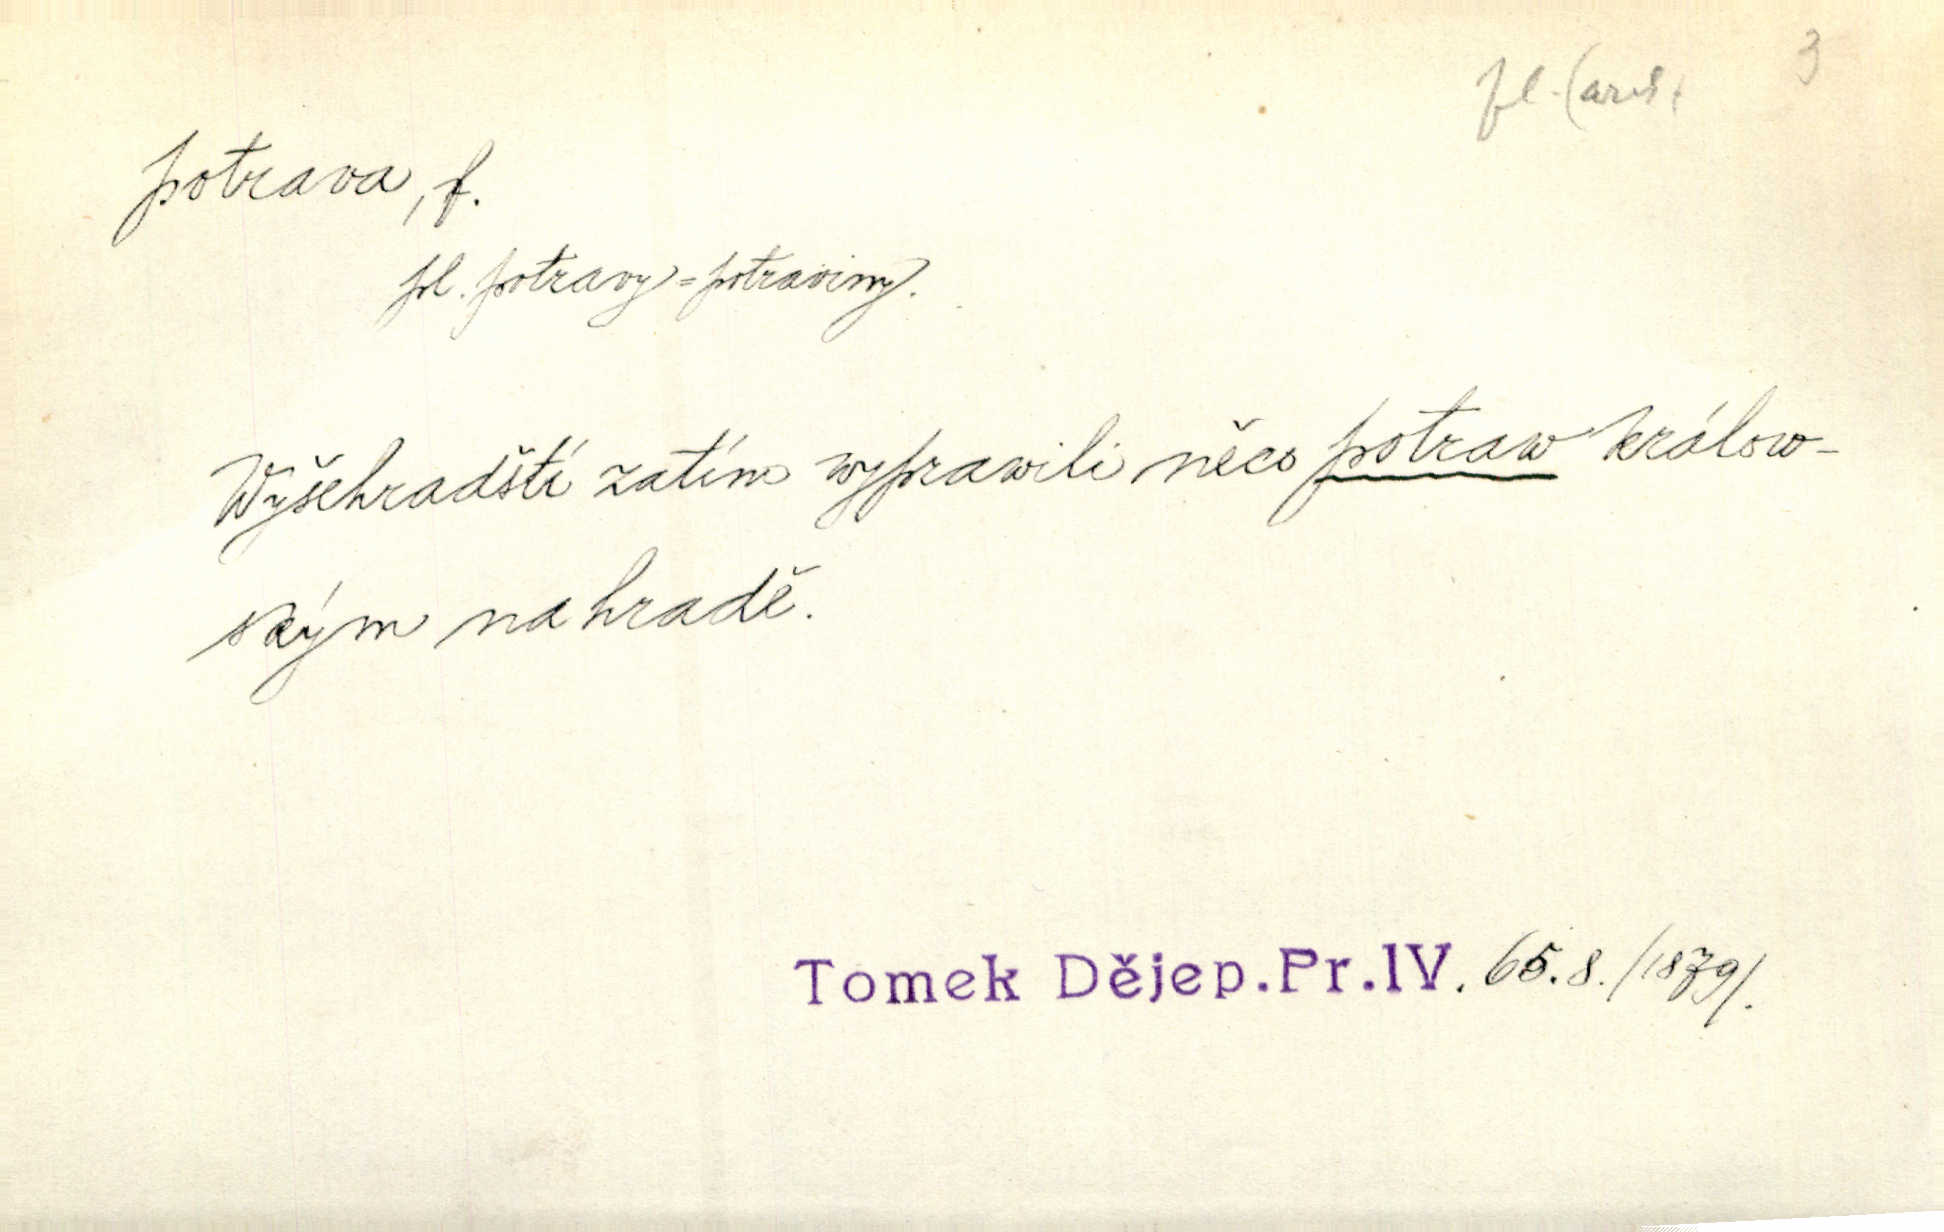 3
pl.
potrava, f.
pl. potravy = potraviny.
Wyšehradští zatím wyprawili něco potraw králow-
ským na hradě.
Tomek Dějep. Pr. IV. 65. 8. /1879/.